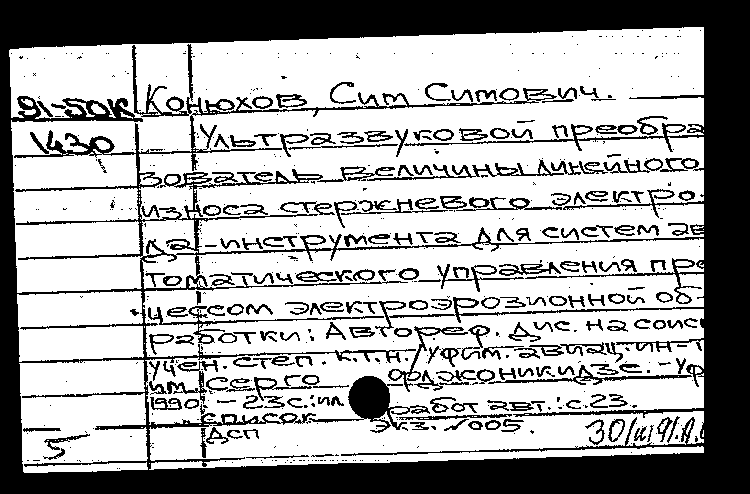 91-50К Конюхов, Сит Ситович.
1430 Ультразвуковой преобра
зователь величины линейного
износа стержневого электро-
да-инструмента для систем ав
томатического управления про
цессом электроэрозионной об-
работки: Автореф. дис. на соиск
учен. степ. к.т.н./Уфим. авиац. ин-т
им. Серго Орджоникидзе. - Уф
1990. - 23 с.: ил.
список работ авт.: с.23.
ДСП Экз. №005.
5 30/III 91.